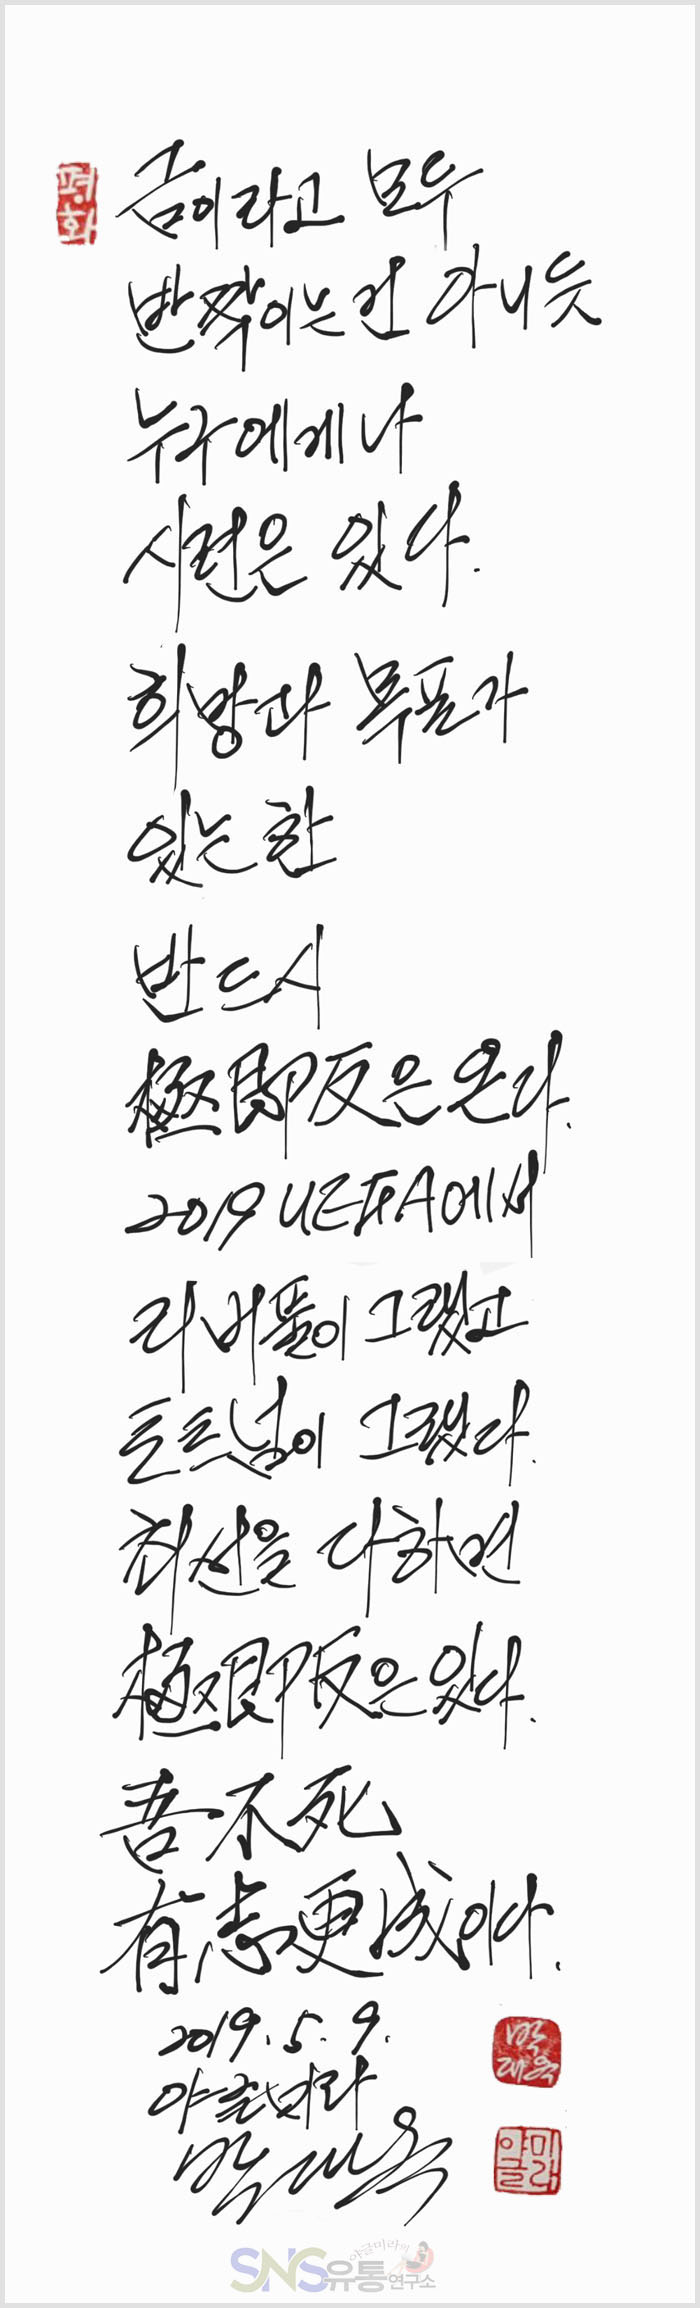 평화
금이라고 모두
반짝이는건 아니듯
누구에게나
시련은 있다.
희망과 목표가
있는한
반드시
極即反은 온다.
2019 UEFA에서
리버풀이 그랬고
토트넘이 그랬다.
최선을 다하면
極即反은 있다.
吾不死
有志更成이다.
2019. 5. 9.
야글미라
박재욱
박재욱
야글미라
야글미라의
SNS유통연구소